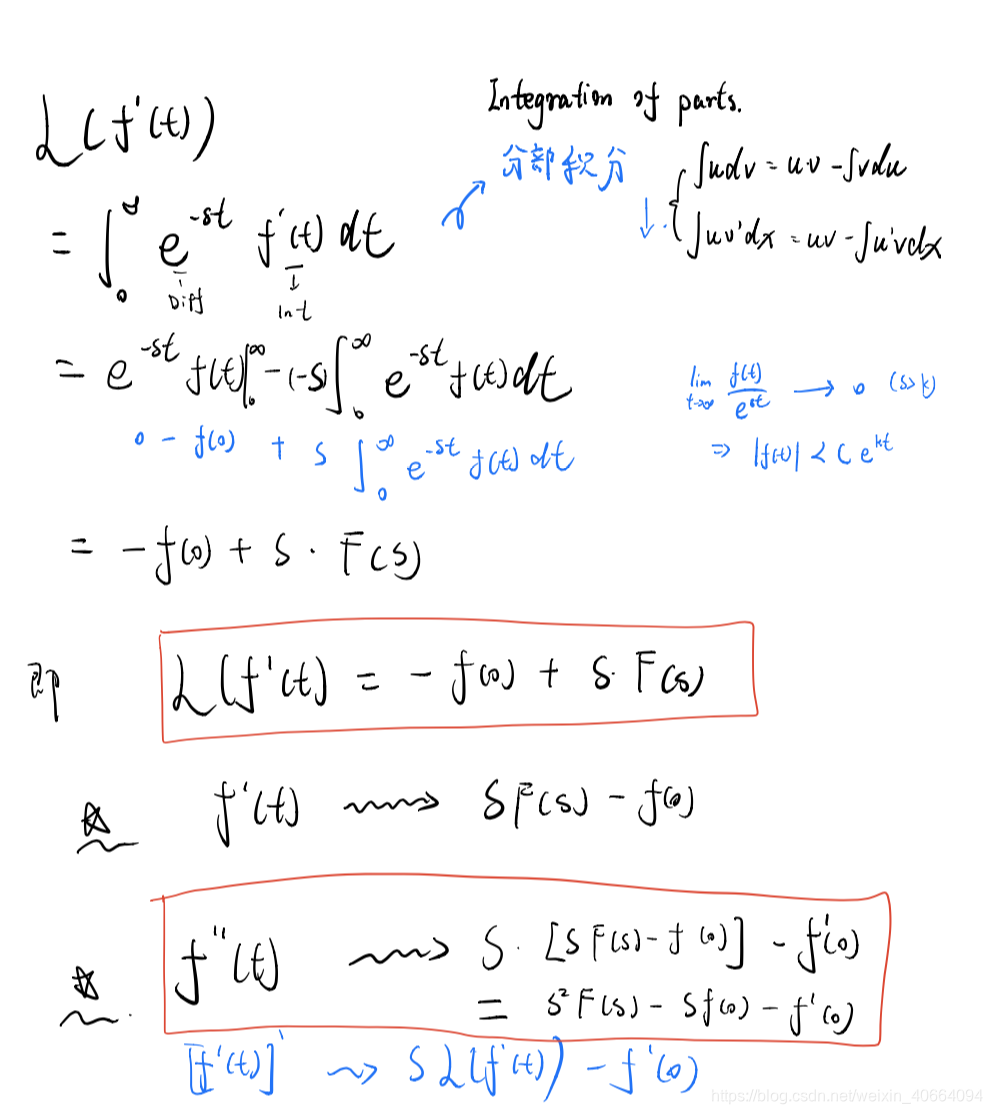 Integration of parts.
L(f'(t))
分部积分
∫udv = uv - ∫vdu
∫uv'dx = uv - ∫u'vdx
= ∫₀^∞ e^{-st} f'(t) dt
Diff
Int
= e^{-st} f(t)|₀^∞ - (-s)∫₀^∞ e^{-st} f(t) dt
lim_{t→∞} f(t)/e^{st} → 0 (s>k)
0 - f(0) + s ∫₀^∞ e^{-st} f(t) dt
⇒ |f(t)| < C e^{kt}
= -f(0) + s · F(s)
即 L(f'(t) = - f(0) + s · F(s)
☆ f'(t) ⟿ sF(s) - f(0)
☆ f''(t) ⟿ s · [sF(s) - f(0)] - f'(0)
= s²F(s) - sf(0) - f'(0)
[f'(t)]' ⟿ sL(f'(t)) - f'(0)
https://blog.csdn.net/weixin_40664094